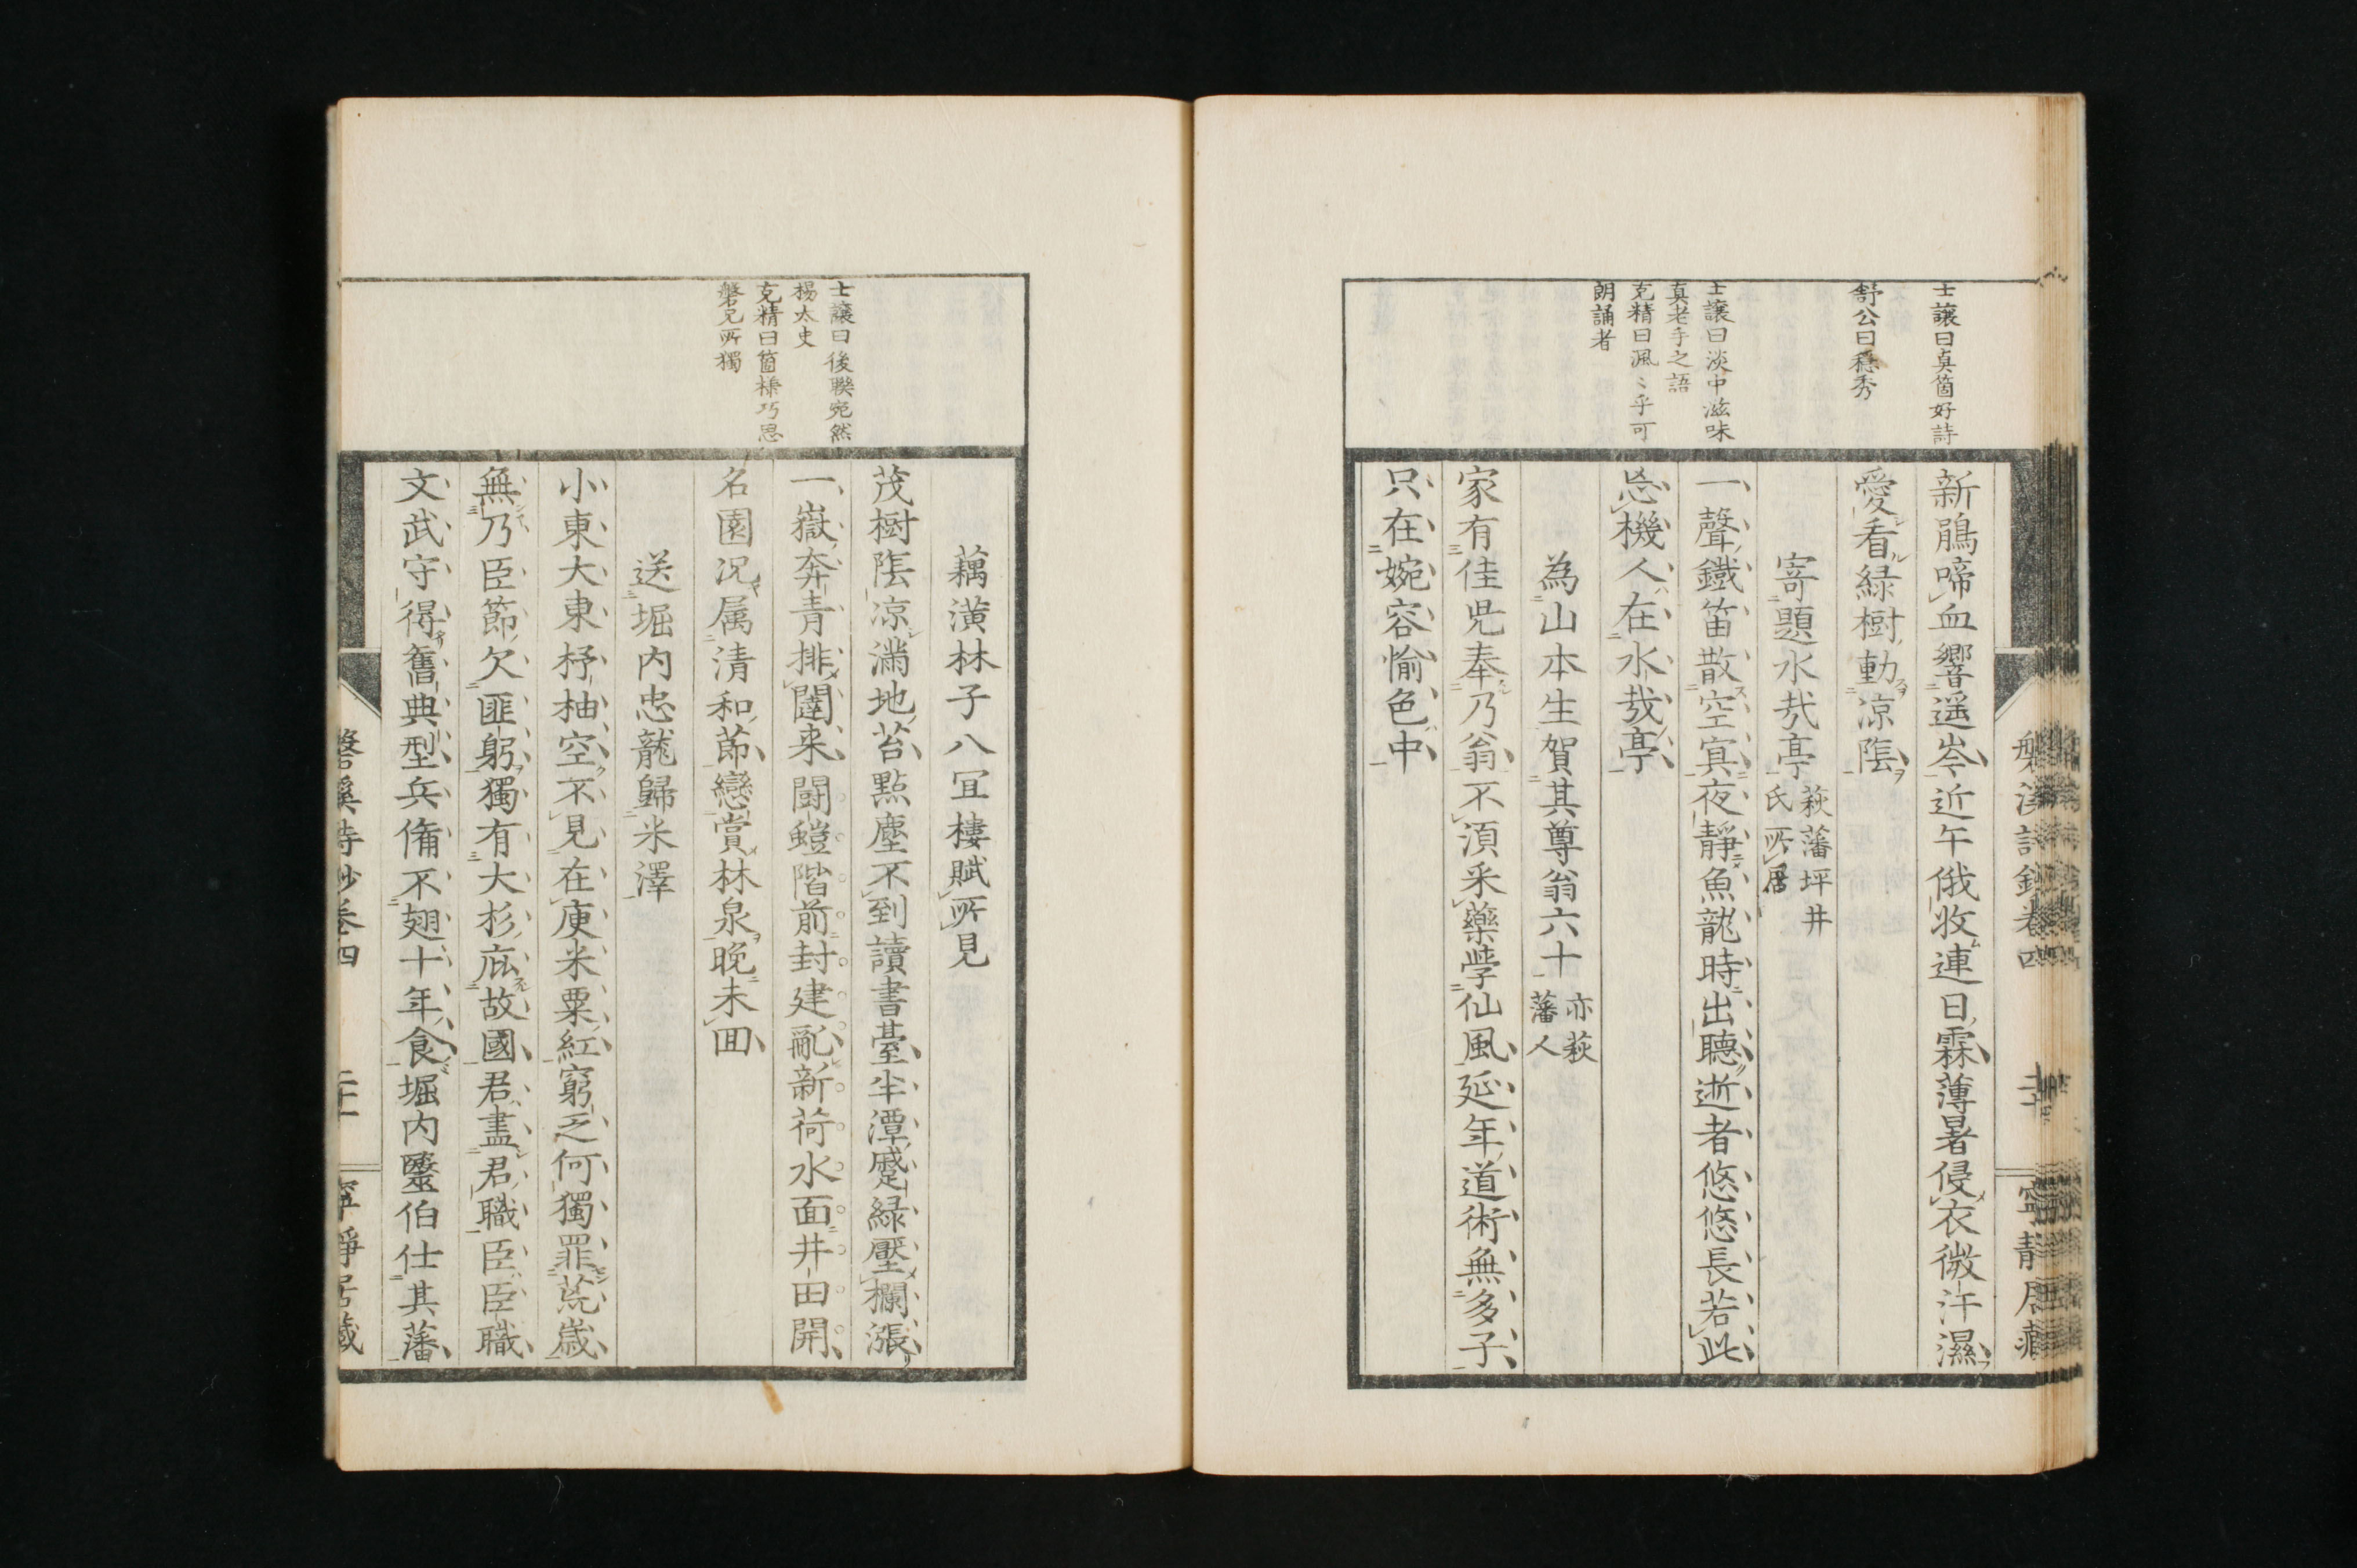 士讓曰真箇好詩
舒公曰穩秀
士讓曰淡中滋味
真老手之語
克精曰渢〻乎可
朗誦者
新鵑啼血響遥岑近午俄收連日霖薄暑侵衣微汗濕
愛看緑樹動凉陰
寄題水哉亭
萩藩坪井
氏所居
一聲鐵笛散空冥夜靜魚龍時出聽逝者悠悠長若此
忘機人在水哉亭
為山本生賀其尊翁六十
亦萩
藩人
家有佳児奉乃翁不湏采藥学仙風延年道術無多子
只在婉容愉色中
士讓曰後聯宛然
楊太史
克精曰箇樣巧思
磐兄所獨
藕潢林子八冝樓賦所見
茂樹陰凉满地苔點塵不到讀書臺半潭蹙緑壓欄漲
一嶽奔青排闥来闘螘階前封建亂新荷水面井田開
名園况属清和節戀賞林泉晚未回
送堀内忠龍歸米澤
小東大東杼柚空不見在庾米粟紅窮乏何獨罪荒歲
無乃臣節欠匪躬獨有大杉庇故國君盡君職臣臣職
文武守得舊典型兵備不翅十年食堀内毉伯仕其藩
磐溪詩鈔卷四
二十一
寧靜居藏